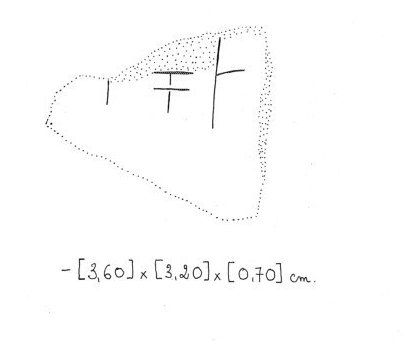 - [3,60] x [3,20] x [0,70] cm.